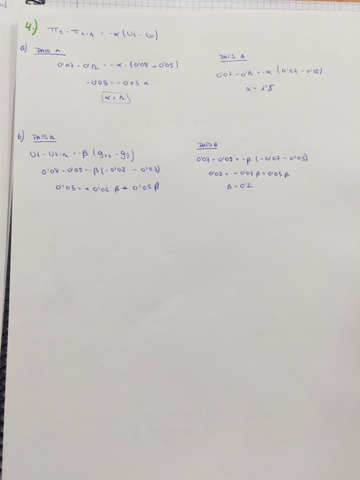 4.) π_t - π_t-1 = -α (U_t - U_n)
a) PAIS A
0'07 - 0'1 = -α (0'08 - 0'05)
-0'03 = -0'03 α
α = 1
PAIS A
0'07 - 0'1 = -α (0'07 - 0'05)
α = 1'5
b) PAIS A
U_t - U_t-1 = -β (g_yt - g_y)
0'08 - 0'05 = β (-0'02 - 0'03)
0'03 = + 0'02 β + 0'03 β
PAIS B
0'07 - 0'05 = -β (-0'07 - 0'03)
0'02 = - 0'07 β + 0'03 β
β = 0'2